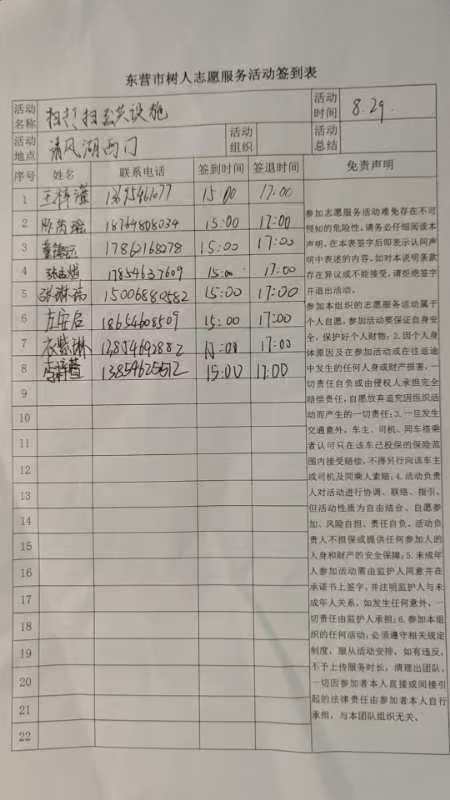 东营市树人志愿服务活动签到表
活动名称 扫打扫公共设施 活动时间 8.29.
活动地点 清风湖西门 活动组织 活动总结
序号 姓名 联系电话 签到时间 签退时间 免责声明
1 15:00 17:00
2 18764808034 15:00 17:00
3 17862168278 15:00 17:00
4 17854637609 15:00 17:00
5 15006880582 15:00 17:00
6 左安启 18654608509 15:00 17:00
7 17:00
8 15:00 17:00
9
10
11
12
13
14
15
16
17
18
19
20
21
22
参加志愿服务活动难免存在不可
预知的危险性，请务必仔细阅读本
声明，在本表签字后即表示认同声
明中表述的内容。如对本说明条款
存在异议或不能接受，请拒绝签字
并退出活动。
参加本组织的志愿服务活动属于
个人自愿，参加活动要保证自身安
全，保护好个人财物；2.因个人身
体原因及在参加活动或在往返途
中发生的任何人身或财产损害，一
切责任自负或由侵权人承担完全
赔偿责任，自愿放弃追究因组织活
动而产生的一切责任；3.一旦发生
交通意外，车主、司机、同车搭乘
者认可只在该车已投保的保险范
围内接受赔偿，不得另行向该车主
或司机及同乘人索赔；4.活动负责
人对活动进行协调、联络、指引，
但活动性质为自由结合、自愿参
加、风险自担、责任自负。活动负
责人不担保或提供任何参加人的
人身和财产的安全保障；5.未成年
人参加活动需由监护人同意并在
承诺书上签字，并注明监护人与未
成年人关系，如发生任何意外，一
切责任由监护人承担；6.参加本组
织的任何活动，必须遵守相关规定
制度，服从活动安排，如有违反，
不予上传服务时长，清理出团队。
一切因参加者本人直接或间接引
起的法律责任由参加者本人自行
承担，与本团队组织无关。